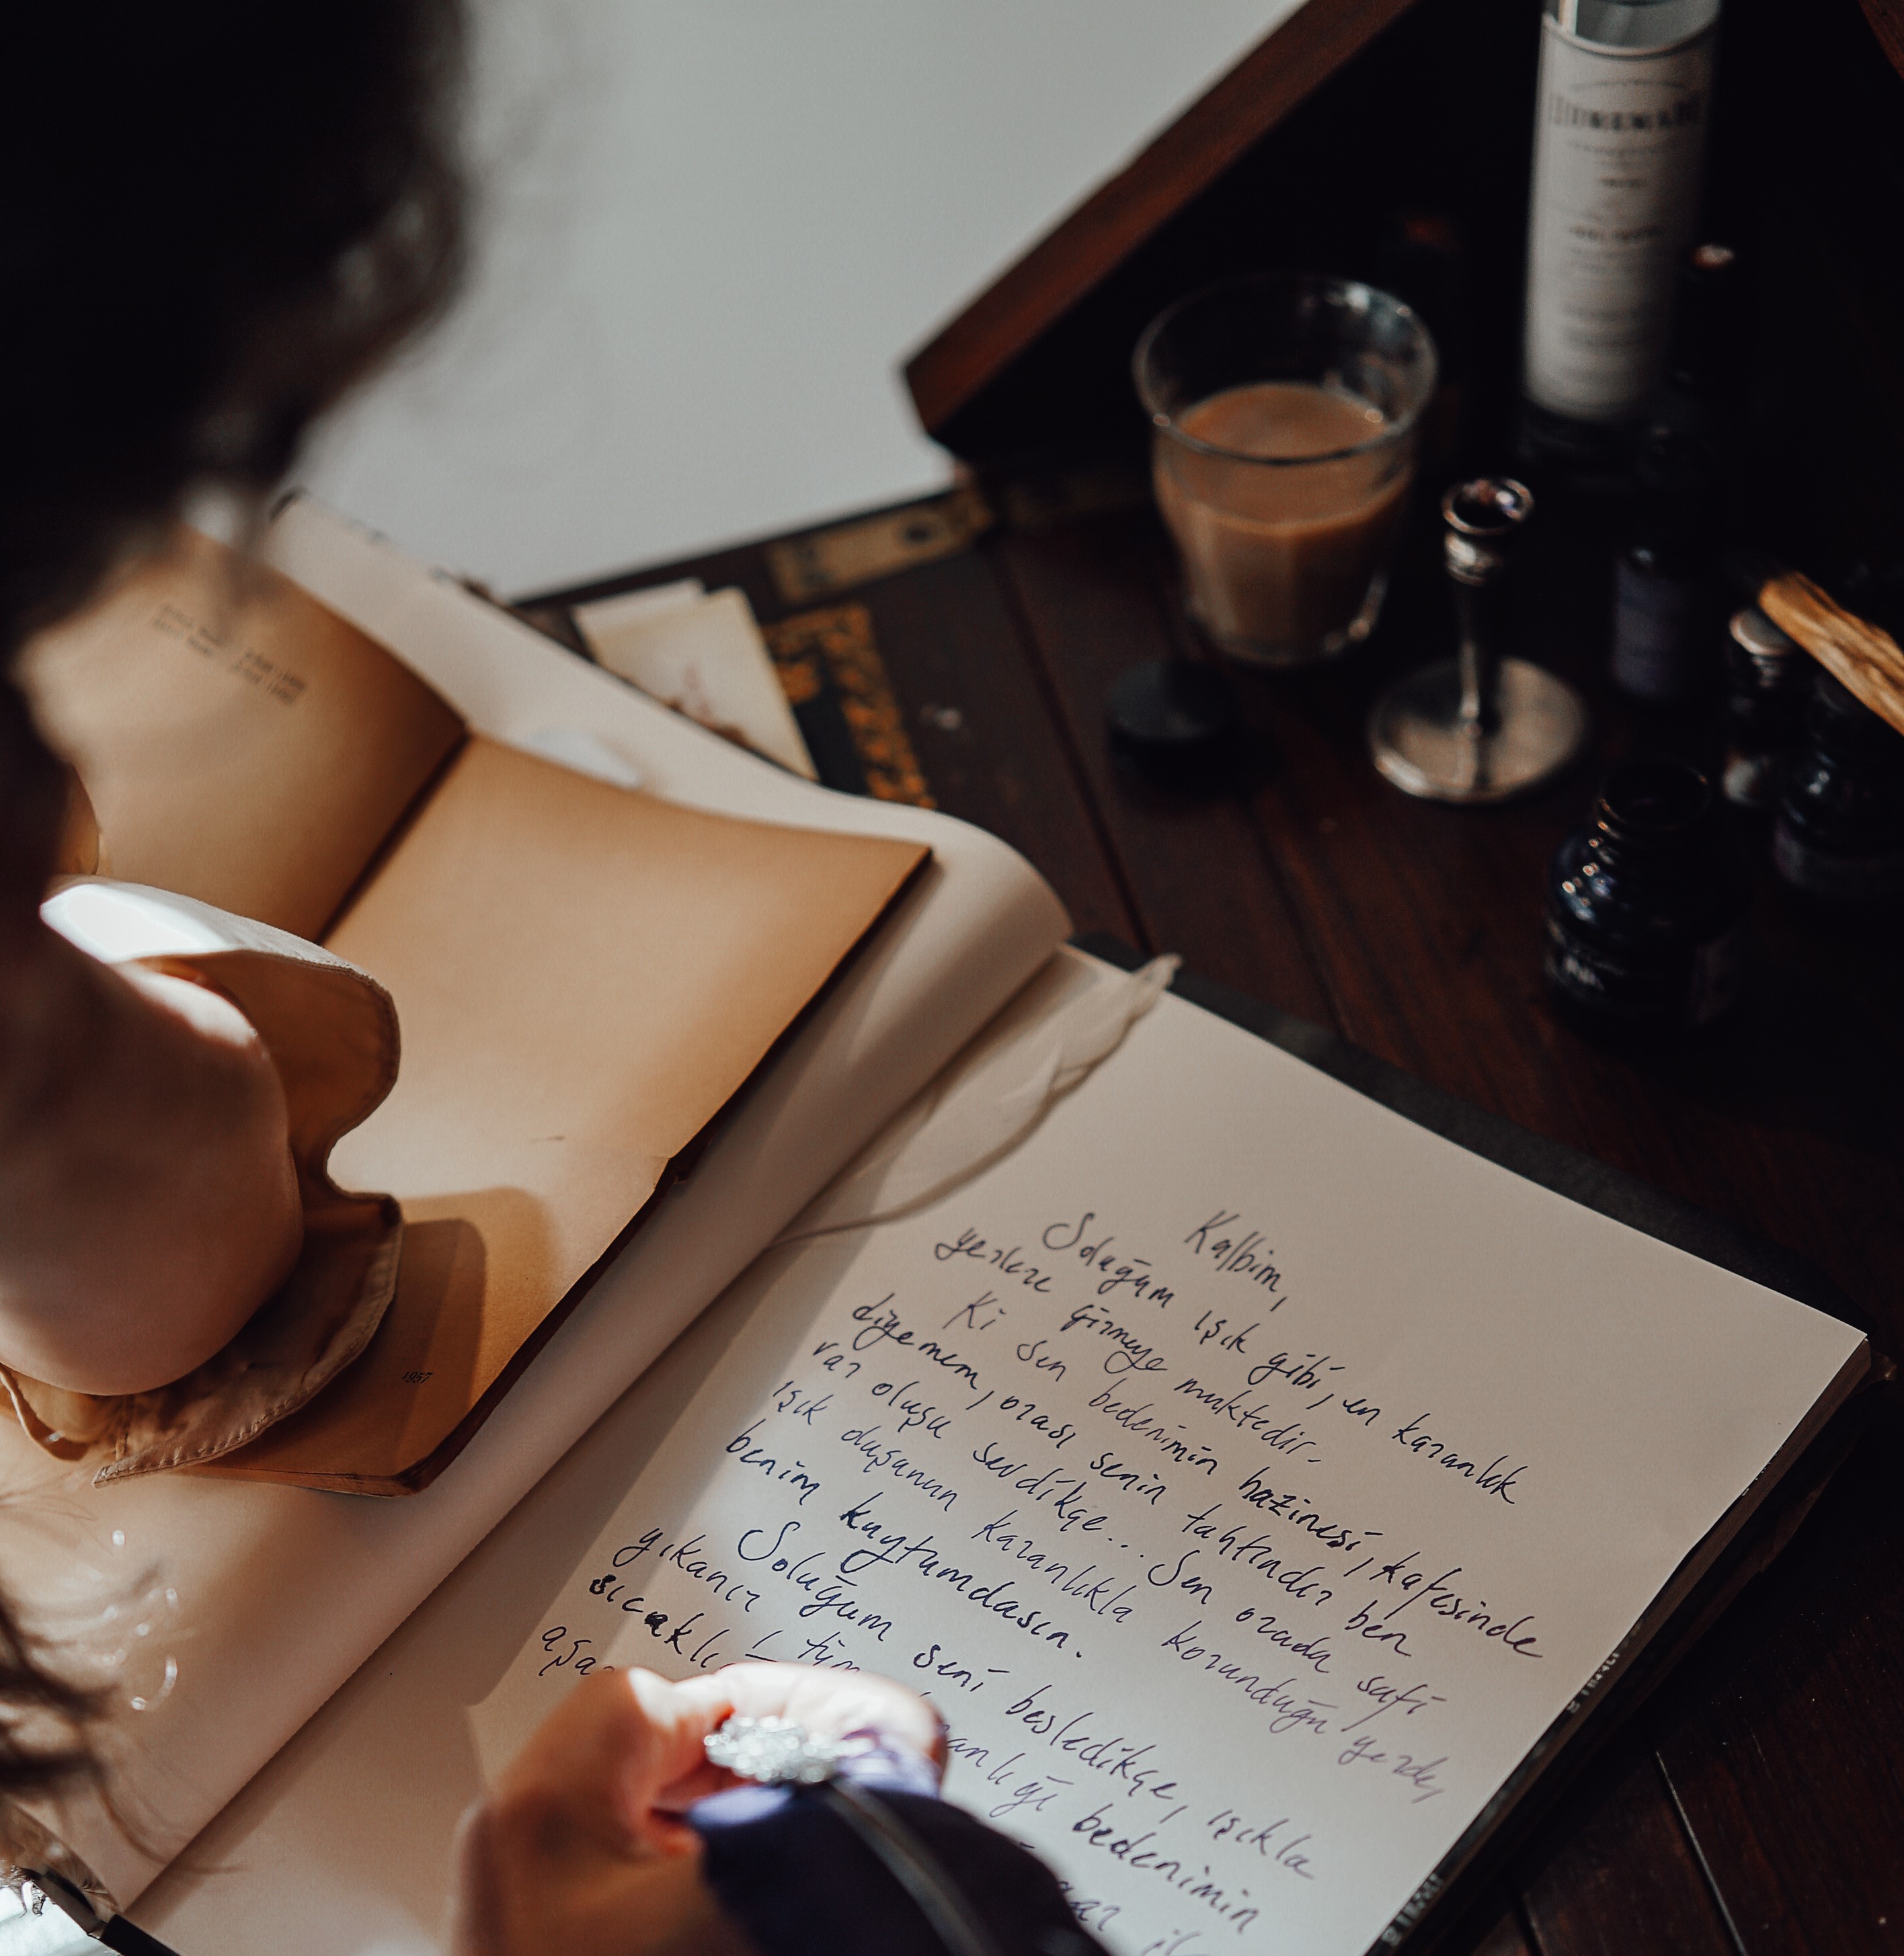 1957
Kalbim,
Soluğum ışık gibi, en karanlık
yerlere girmeye muktedir.
Ki sen bedenimin hazinesi, kafesinde
diyemem, orası senin tahtındır ben
var oluşu sevdikçe... Sen orada safi
ışık duşunun karanlıkla korunduğu yerde,
benim kuytumdasın.
Soluğum seni besledikçe, ışıkla
yıkanır tüm bedenimin